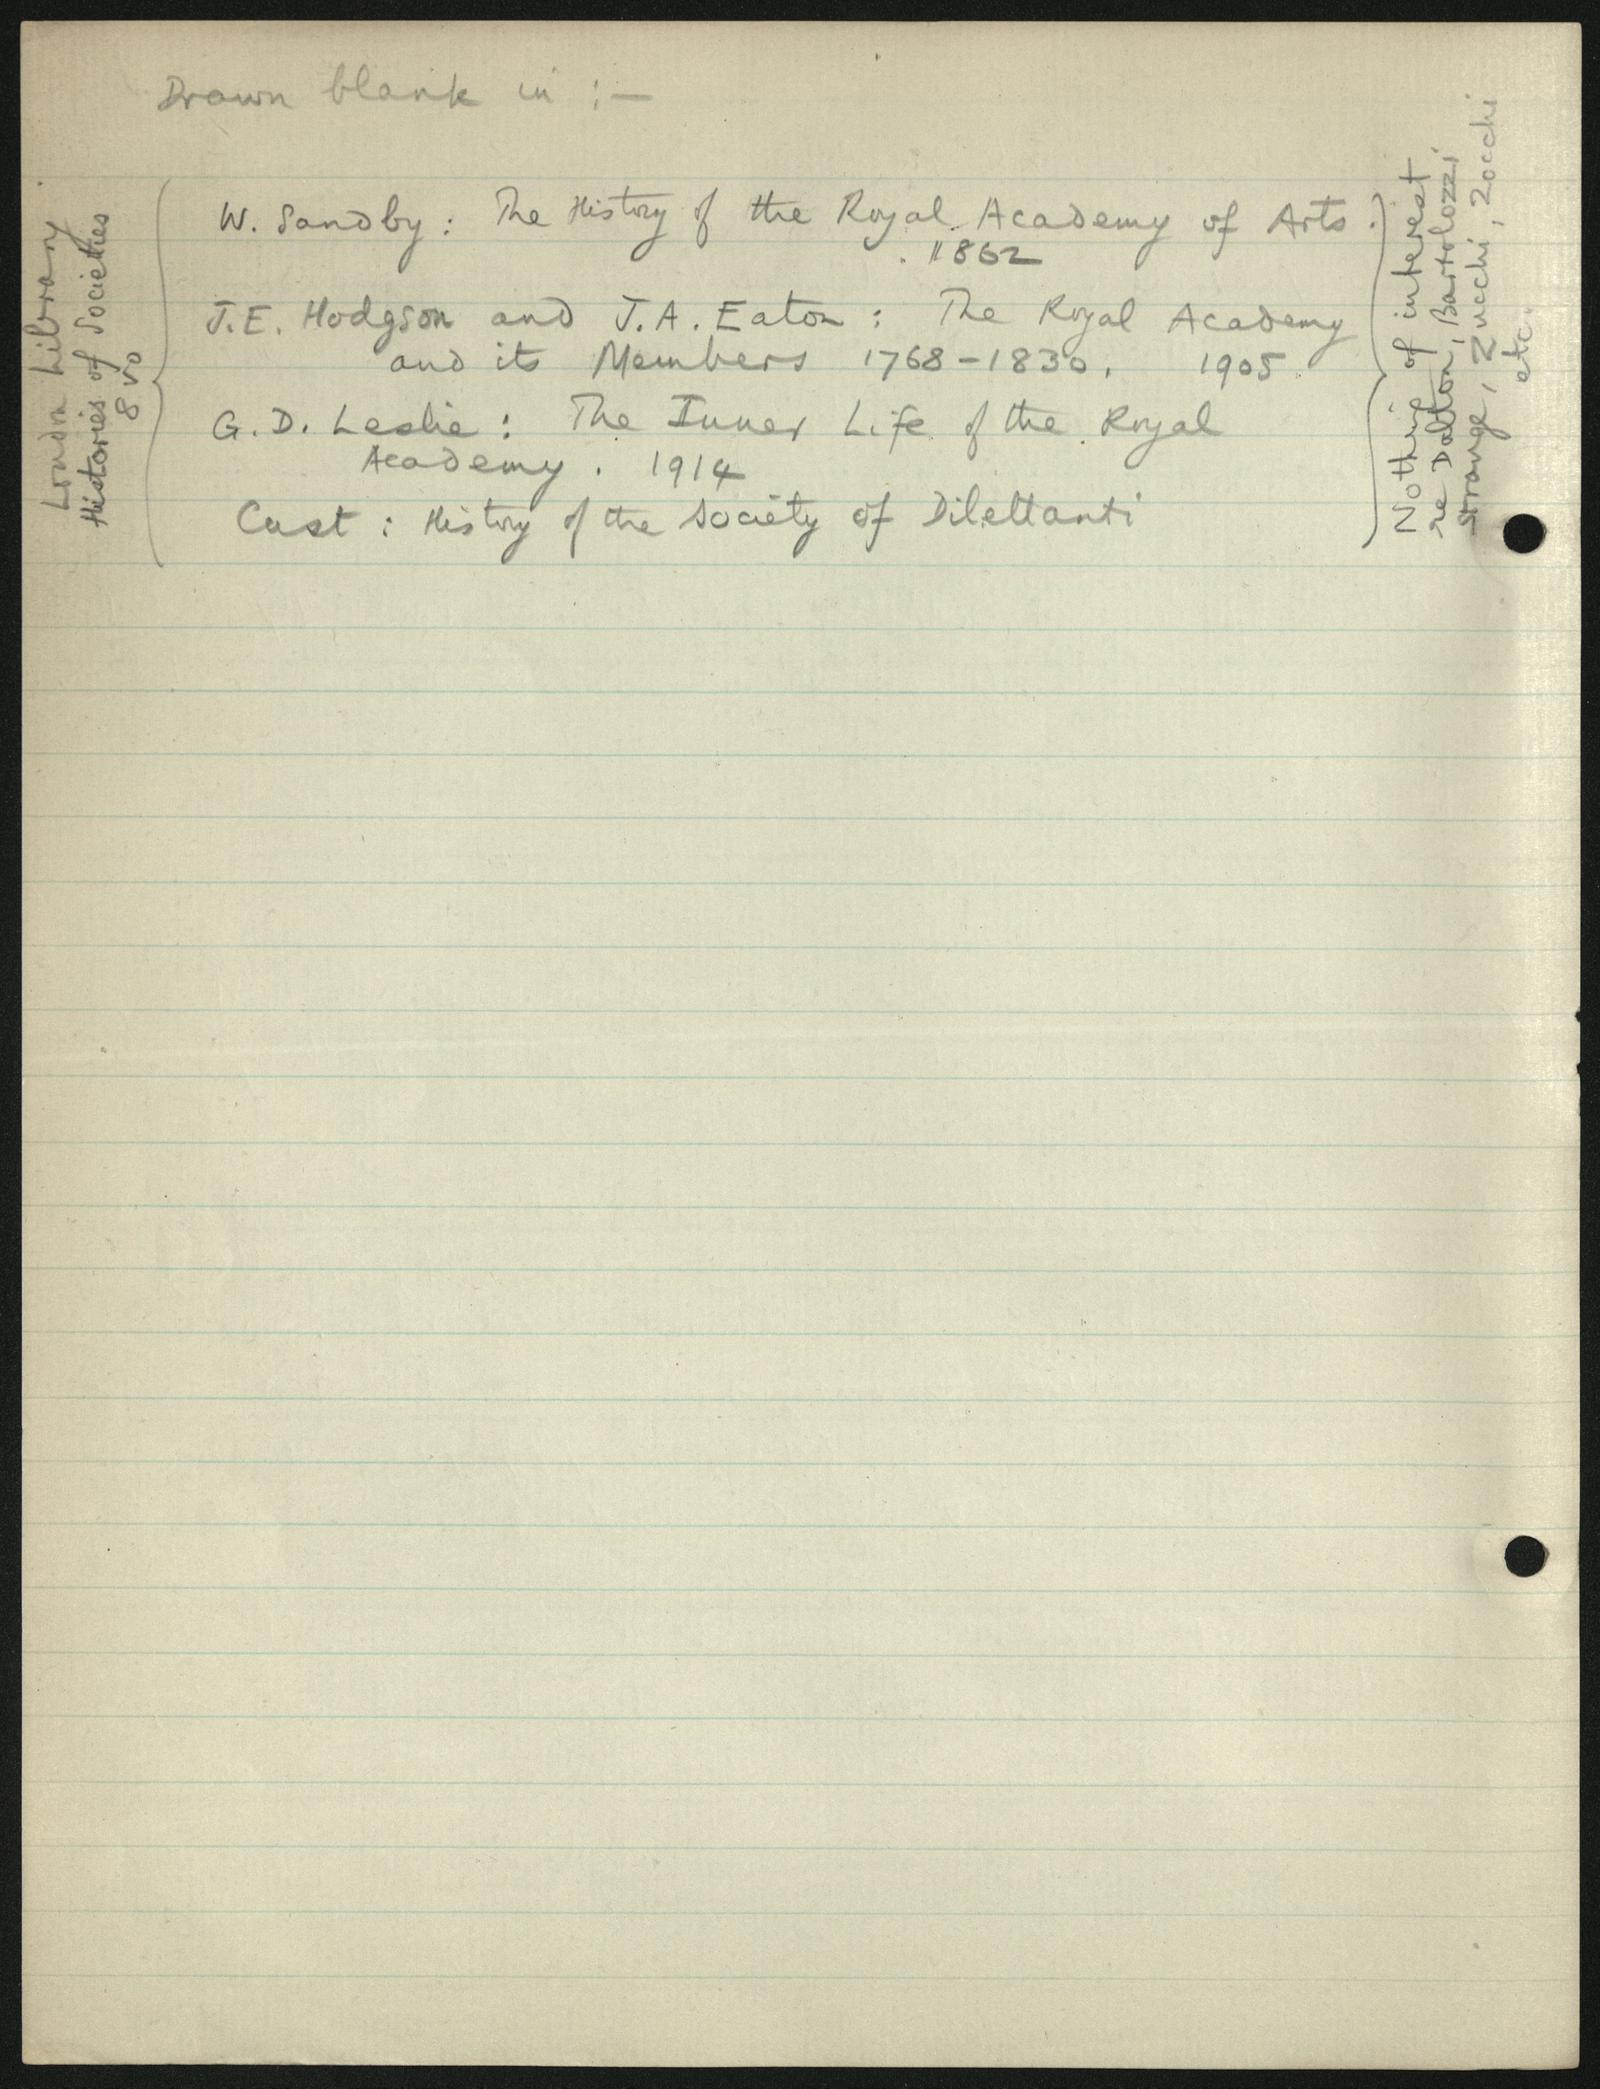 Drawn blank in :—
London Library
Histories of Societies
8vo
W. Sandby : The History of the Royal Academy of Arts.
1862
J.E. Hodgson and J.A. Eaton : The Royal Academy
and its Members 1768-1830. 1905
G.D. Leslie : The Inner Life of the Royal
Academy. 1914
Cust : History of the Society of Dilettanti
Nothing of interest
re Dalton, Bartolozzi
Strange, Zucchi, Zocchi
etc.